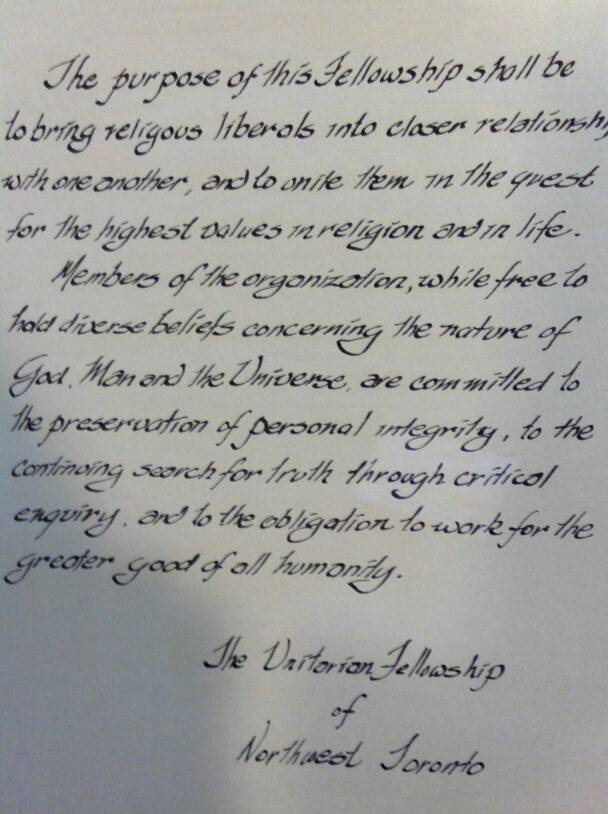 The purpose of this Fellowship shall be
to bring religous liberals into closer relationship
with one another, and to unite them in the quest
for the highest values in religion and in life.
Members of the organization, while free to
hold diverse beliefs concerning the nature of
God, Man and the Universe, are committed to
the preservation of personal integrity, to the
continuing search for truth through critical
enquiry, and to the obligation to work for the
greater good of all humanity.
The Unitarian Fellowship
of
Northwest Toronto